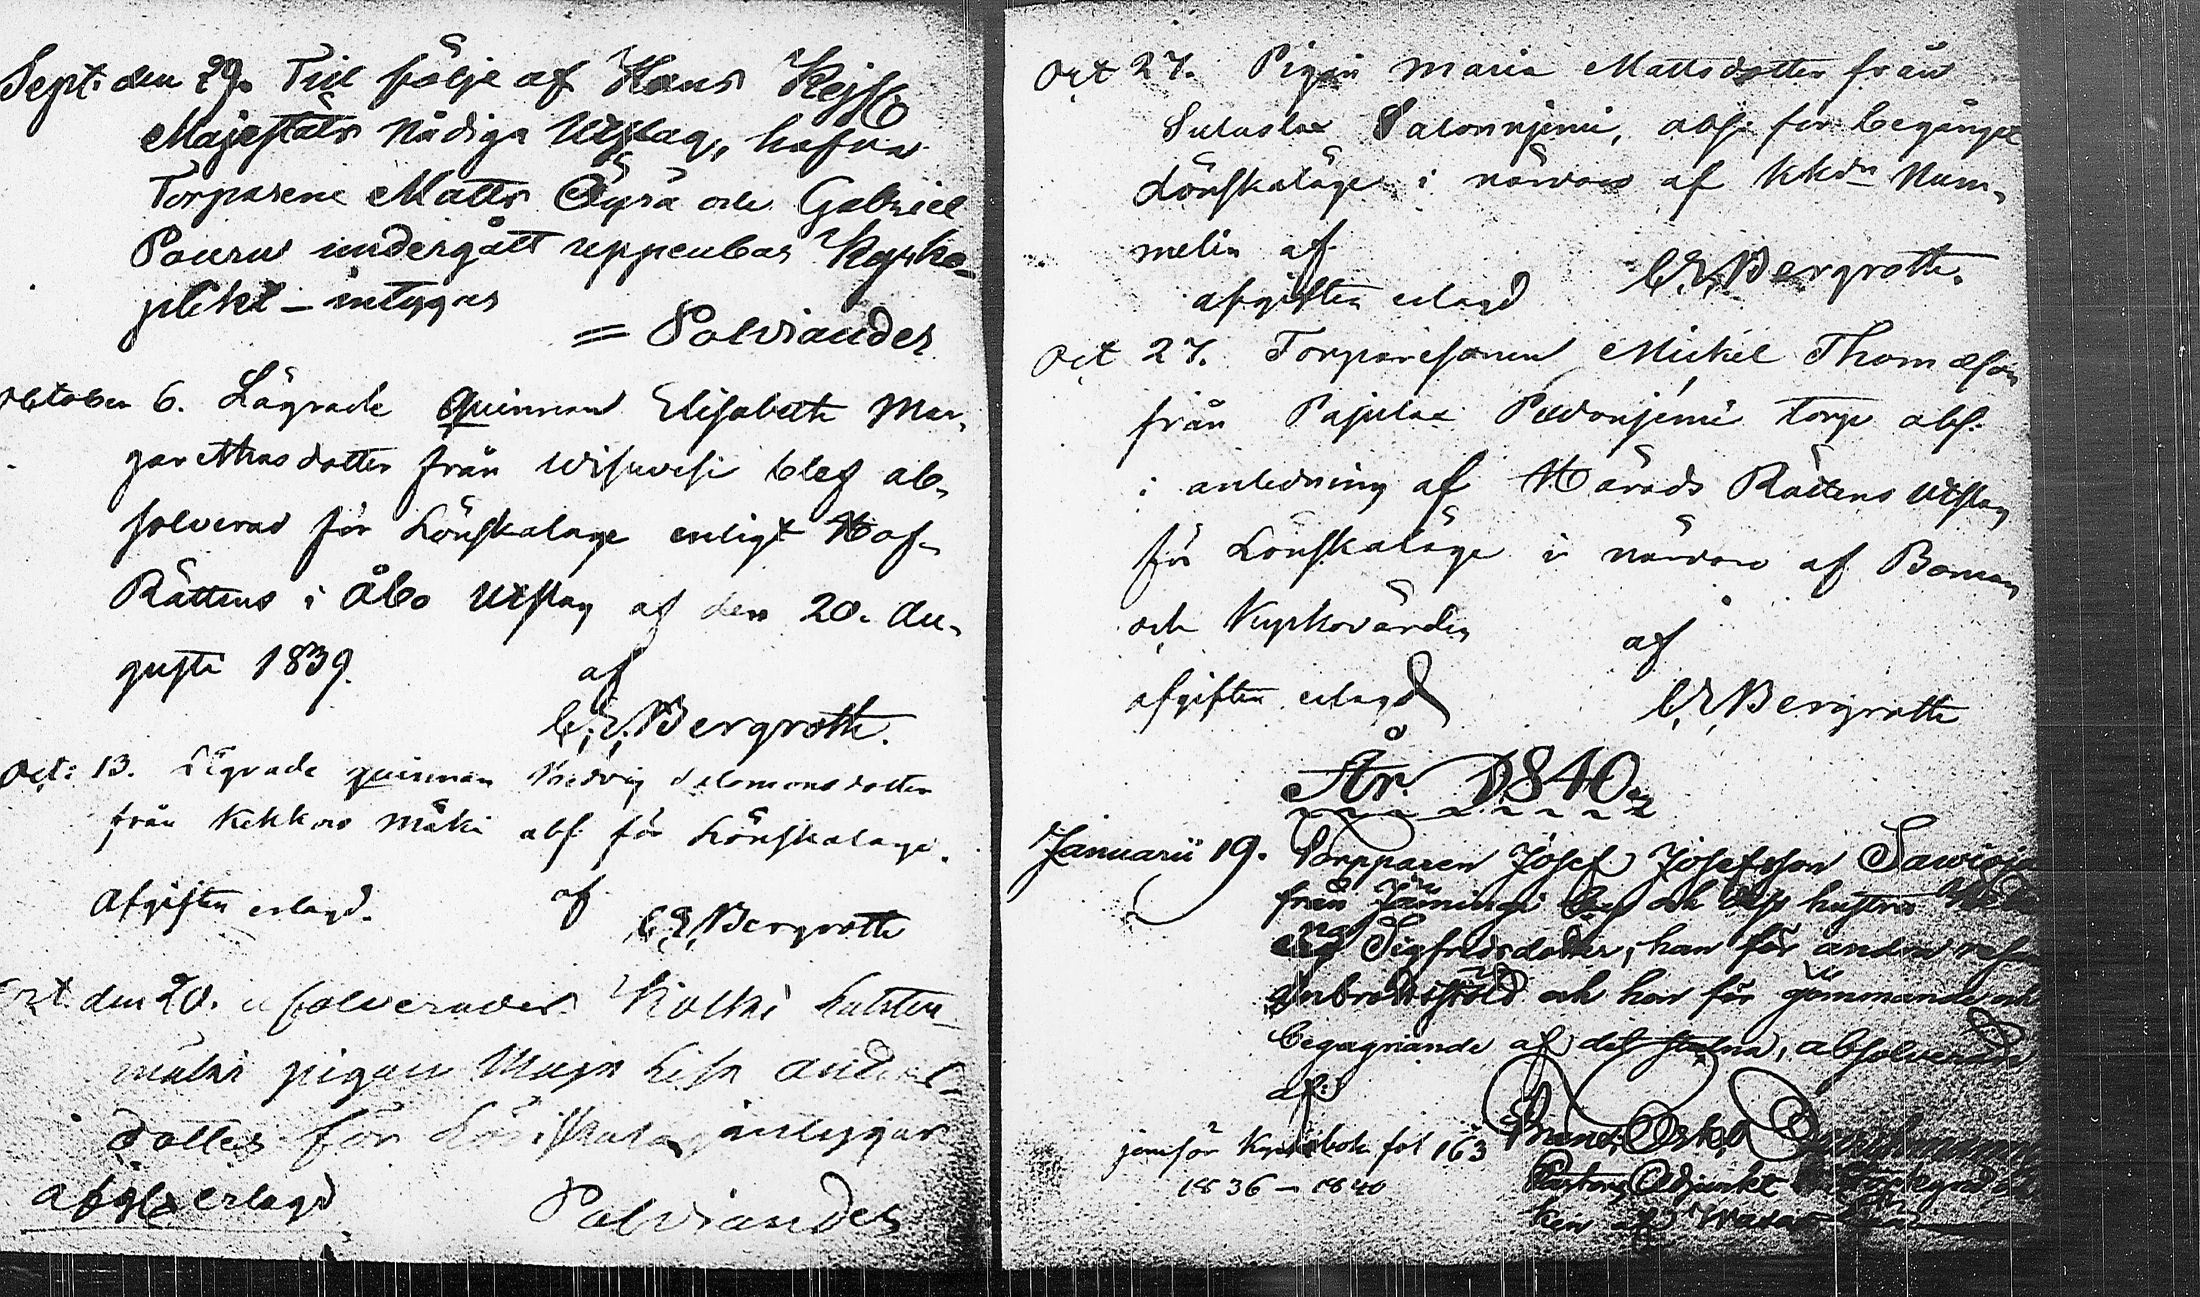 Sept. den 29. Till följe af Hans Kejss
Majestäts Nådiga Utslag, hafva
Torparene Matts Äyrä och Gabriel
Pauru undergått uppenbar Kyrko-
plikt – intygas
= Polviander
October 6. Lägrade Quinnan Elisabeth Mar-
garethasdotter från Wisuvesi blef ab-
solverad för Lönskaläge enligt Hof-
Rättens i Åbo Utslag af den 20. Au-
gusti 1839.
af
C.E. Bergroth.
Oct: 13. Lägrade quinnan Hedvig Salomonsdotter
från Kekkos mäki abs. för Lönskaläge.
Afgiften erlagd.
af
C.E. Bergroth
Oct. den 20. absolverades
pigan Maja Lisa Anders-
dotter för Lönskaläge intygar
afgft erlagd
Polviander
Oct 27. Pigan Maria Mattsdotter från
Sulaslax Salonnjemi, abs. för begånget
Lönskaläge i närvaro af Kkvdn Num-
melin af
C.E. Bergroth.
afgiften erlagd
Oct 27. Torparesonen Mickel Thomasson
från Pajulax Pedonjemi torp abs.
i anledning af Härads Rättens Utslag
för Lönskaläge i närvaro af Boman
och Kyrkovärden
af
afgiften erlagd
C.E. Bergroth
År 1840.
Januarii 19. Torpparen Josef Josefsson
från by och hustru
Sigfridsdotter, han för andra resan
och hon för gömmande och
begagnande af det stulna, absolverade
af:
jemför Kyrkobok fol 163
1836–1840
Pastors Adjunkt